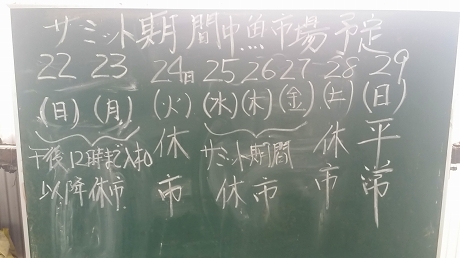 サミット期間中魚市場予定
22 23 24日 25 26 27 28 29
(日) (月) (火) (水) (木) (金) (土) (日)
午後12時まで入札
以降休市
休市
サミット期間
休市
休市
平常